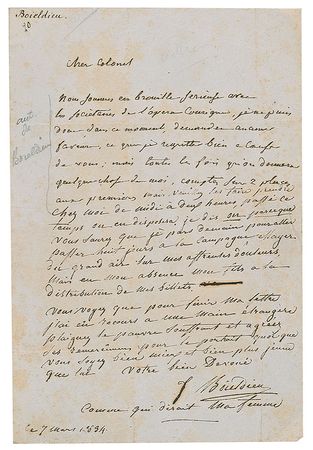 Boieldieu
aut.
de
Boieldieu
Mon Colonel
Nous sommes en brouille serieuse avec
les societaires de l'opera Comique, je ne puis
donc dans ce moment, demander aucune
faveur, ce que je regrette bien a cause
de vous; mais toutes les fois qu'on donnera
quelque chose de moi, comptez sur 2 places
aux premieres mais venillez les faire prendre
chez moi de midi a deux heures passé ce
temps on en dispose, je dis on parceque
vous saurez que je pars demain pour aller
passer huit jours a la Campagne essayer
du grand air sur mes affreuses douleurs,
Mais en mon absence mon fils a la
distribution de mes billets.
Vous voyez que pour finir ma lettre
j'ai eu recours a une main étrangère
plaignez le pauvre souffrant et agréez
ses
pour le portant quoi que
vous soyez bien mieux et bien plus jeune
que lui Votre bien Devoué
Boieldieu
Comme qui dirait sa femme
Ce 7 mars 1834.